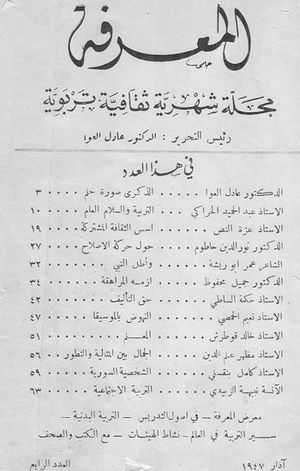 المعرفة
مجلة شهرية ثقافية تربوية
رئيس التحرير : الدكتور عادل العوا
في هذا العدد
الدكتور عادل العوا . . . . . الذكرى صورة حلم . . . . ٣
الاستاذ عبد الحميد الحراكي . . . التربية والسلام العام . . . . ١٠
الاستاذ عزة النص . . . . . اسس الثقافة المشتركة . . . ١٩
الدكتور نور الدين حاطوم . . . . حول حركة الاصلاح . . . ٢٧
الشاعر عمر ابو ريشة . . . . وأطل النبي . . . . . ٣٢
الدكتور جميل محفوظ . . . . ازمة المراهقة . . . . . ٣٤
الاستاذ حكة الساطي . . . . حق التأليف . . . . . ٤٢
الاستاذ نعيم الحمصي . . . . النهوض بالموسيقا . . . . ٤٧
الاستاذ خالد قوطرش . . . . المعلم . . . . . ٥١
الاستاذ مظهر علم الدين . . . . الجمال بين المثالية والتطور . . ٥٦
الاستاذ كامل بنقسلي . . . . الشخصية السورية . . . . ٥٩
الآنسة نبيهة الزبيدي . . . . التربية الاجتماعية . . . . ٦٣
معرض المعرفة – في اصول التدريس – التربية البدنية –
سير التربية في العالم – نشاط الهيئات – مع الكتب والصحف
آذار ١٩٤٧
العدد الرابع